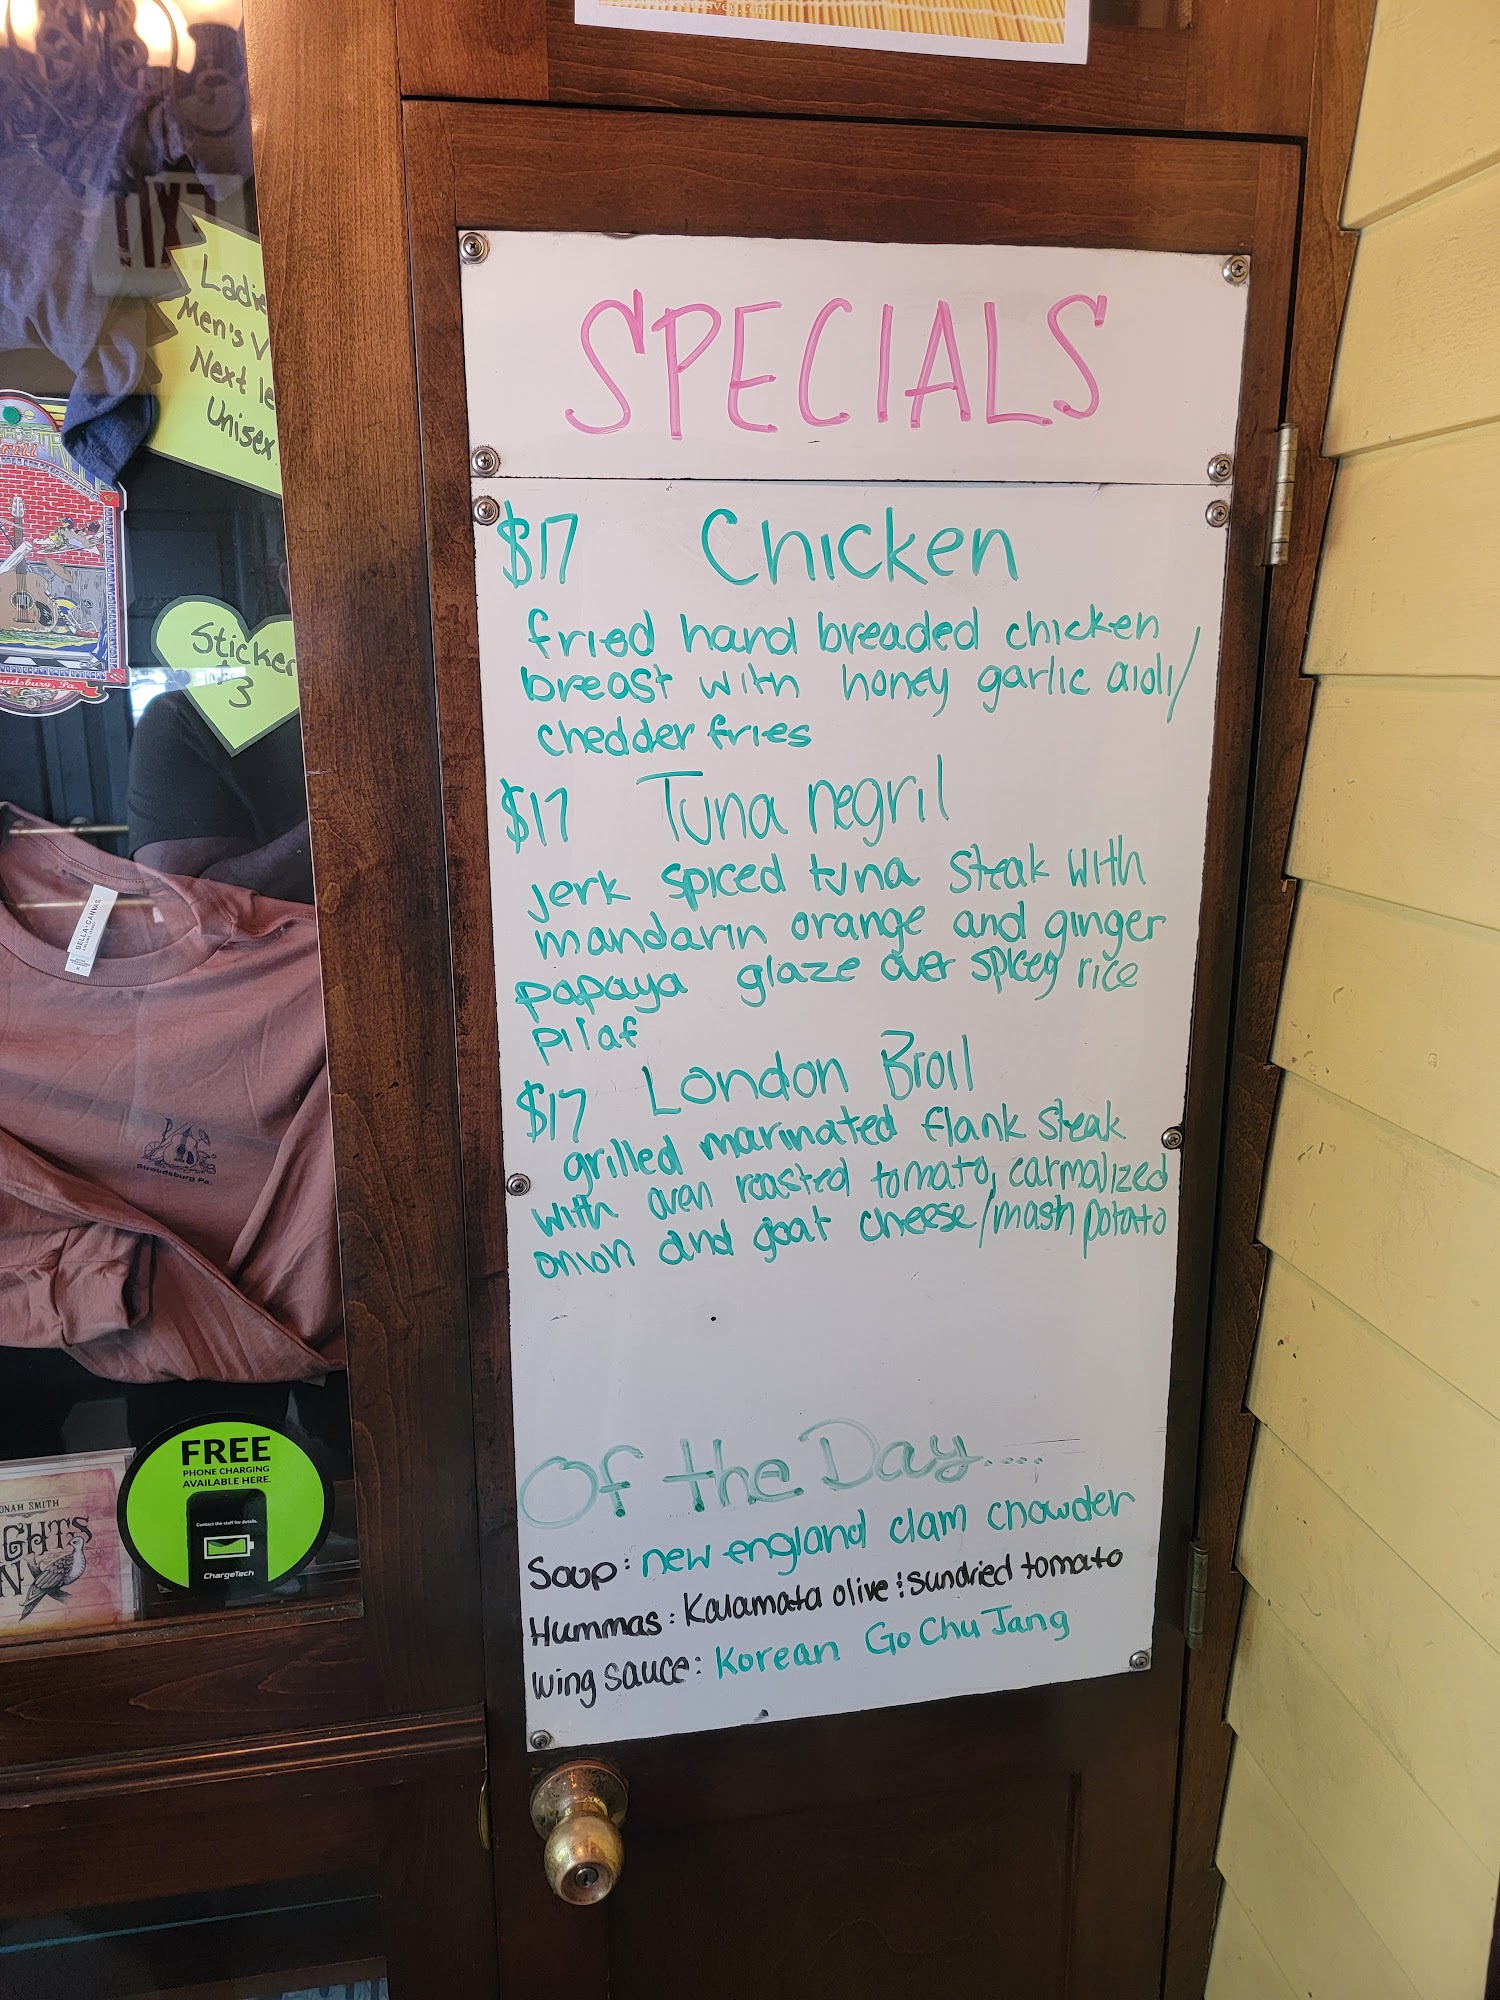 EXIT
Ladie
Men's V
Next le
Unisex
Grill
oudsburg, Pa.
Sticker
$3
BELLA+CANVAS
Stroudsburg Pa.
FREE
PHONE CHARGING
AVAILABLE HERE.
Contact the staff for details.
ChargeTech
ONAH SMITH
GHTS
N
SPECIALS
$17 Chicken
fried hand breaded chicken
breast with honey garlic aioli/
chedder fries
$17 Tuna negril
jerk spiced tuna steak with
mandarin orange and ginger
papaya glaze over spicey rice
pilaf
$17 London Broil
grilled marinated flank steak
with oven roasted tomato, carmalized
onion and goat cheese/mash potato
Of the Day.....
Soup: new england clam chowder
Hummas: Kalamata olive & sundried tomato
Wing sauce: Korean Go Chu Jang